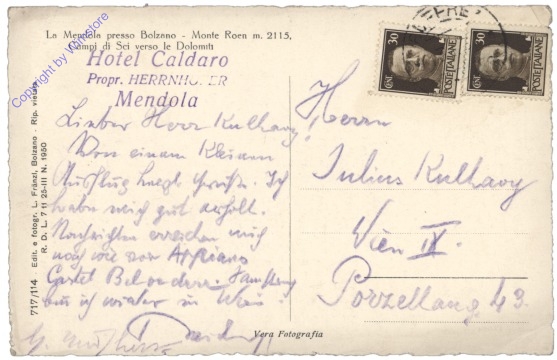 La Mendola presso Bolzano - Monte Roen m. 2115,
Campi di Sci verso le Dolomiti
Hotel Caldaro
Propr. HERRNHOFER
Mendola
Copyright by Wnrstore
CENT. 30 POSTE ITALIANE
CENT. 30 POSTE ITALIANE
Lieber Herr Kulhavy!
Von einem kleinen
Ausflug herzl. Grüße. Ich
habe mich gut erholt.
Nachrichten erreichen mich
noch wie vor Appiano
Castel Belvedere. Samstag
bin ich wieder in Wien
Herrn
Julius Kulhavy
Wien IX.
Porzellang. 43.
717/114 - Edit. e fotogr. L. Fränzl, Bolzano - Rip. vietata
R. D. L. 7 11 25-III N. 1950
Vera Fotografia